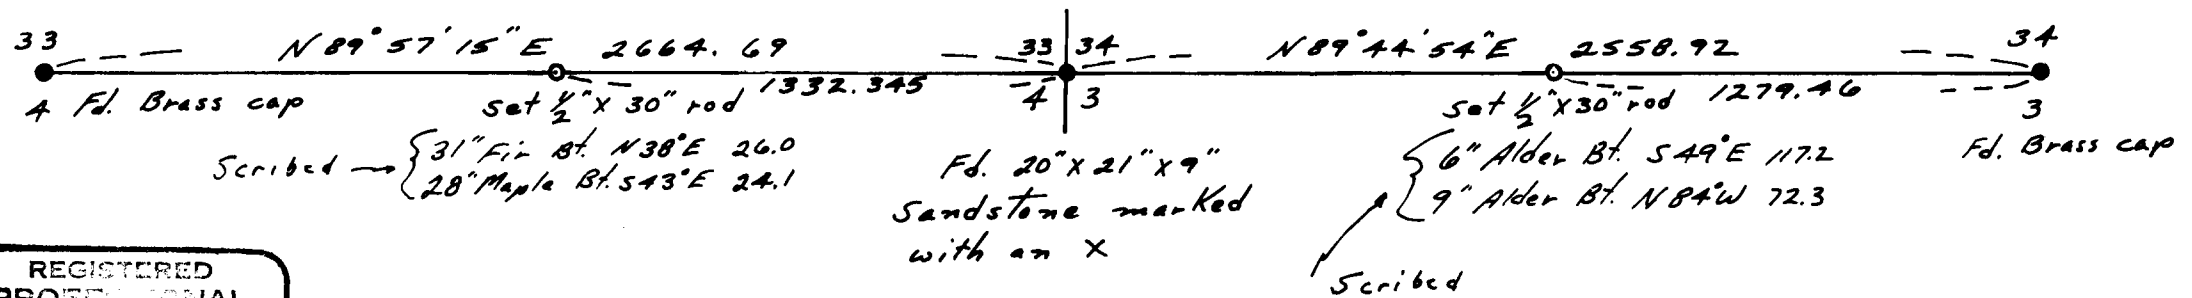 33 N 89° 57' 15" E 2664.69 33 34 N 89° 44' 54" E 2558.92 34
4 Fd. Brass cap set 1/2" x 30" rod 1332.345 4 3 set 1/2" x 30" rod 1279.46 3
Fd. Brass cap
Scribed → { 31" Fir Bt. N38°E 26.0
28" Maple Bt. S43°E 24.1
Fd. 20" x 21" x 9"
Sandstone marked
with an X
6" Alder Bt. S49°E 117.2
9" Alder Bt. N84°W 72.3
Scribed
REGISTERED